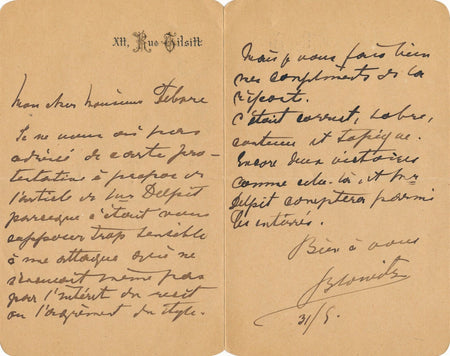 XII, Rue Tilsitt
Mon cher Monsieur Debare
Je ne vous ai pas
adressé de carte pro-
testative à propos de
l'article de Mr Delpit
parceque c'était vous
supposer trop sensible
à une attaque qui ne
même pas
par l'intérêt du récit
ou l'agrément du style.
Mais je vous fais bien
mes compliments de la
riposte.
C'était correct, sobre,
contenu et topique.
Encore deux victoires
comme celle-là et Mr
Delpit comptera parmi
les enterrés.
Bien à vous
Blowitz
31/5.